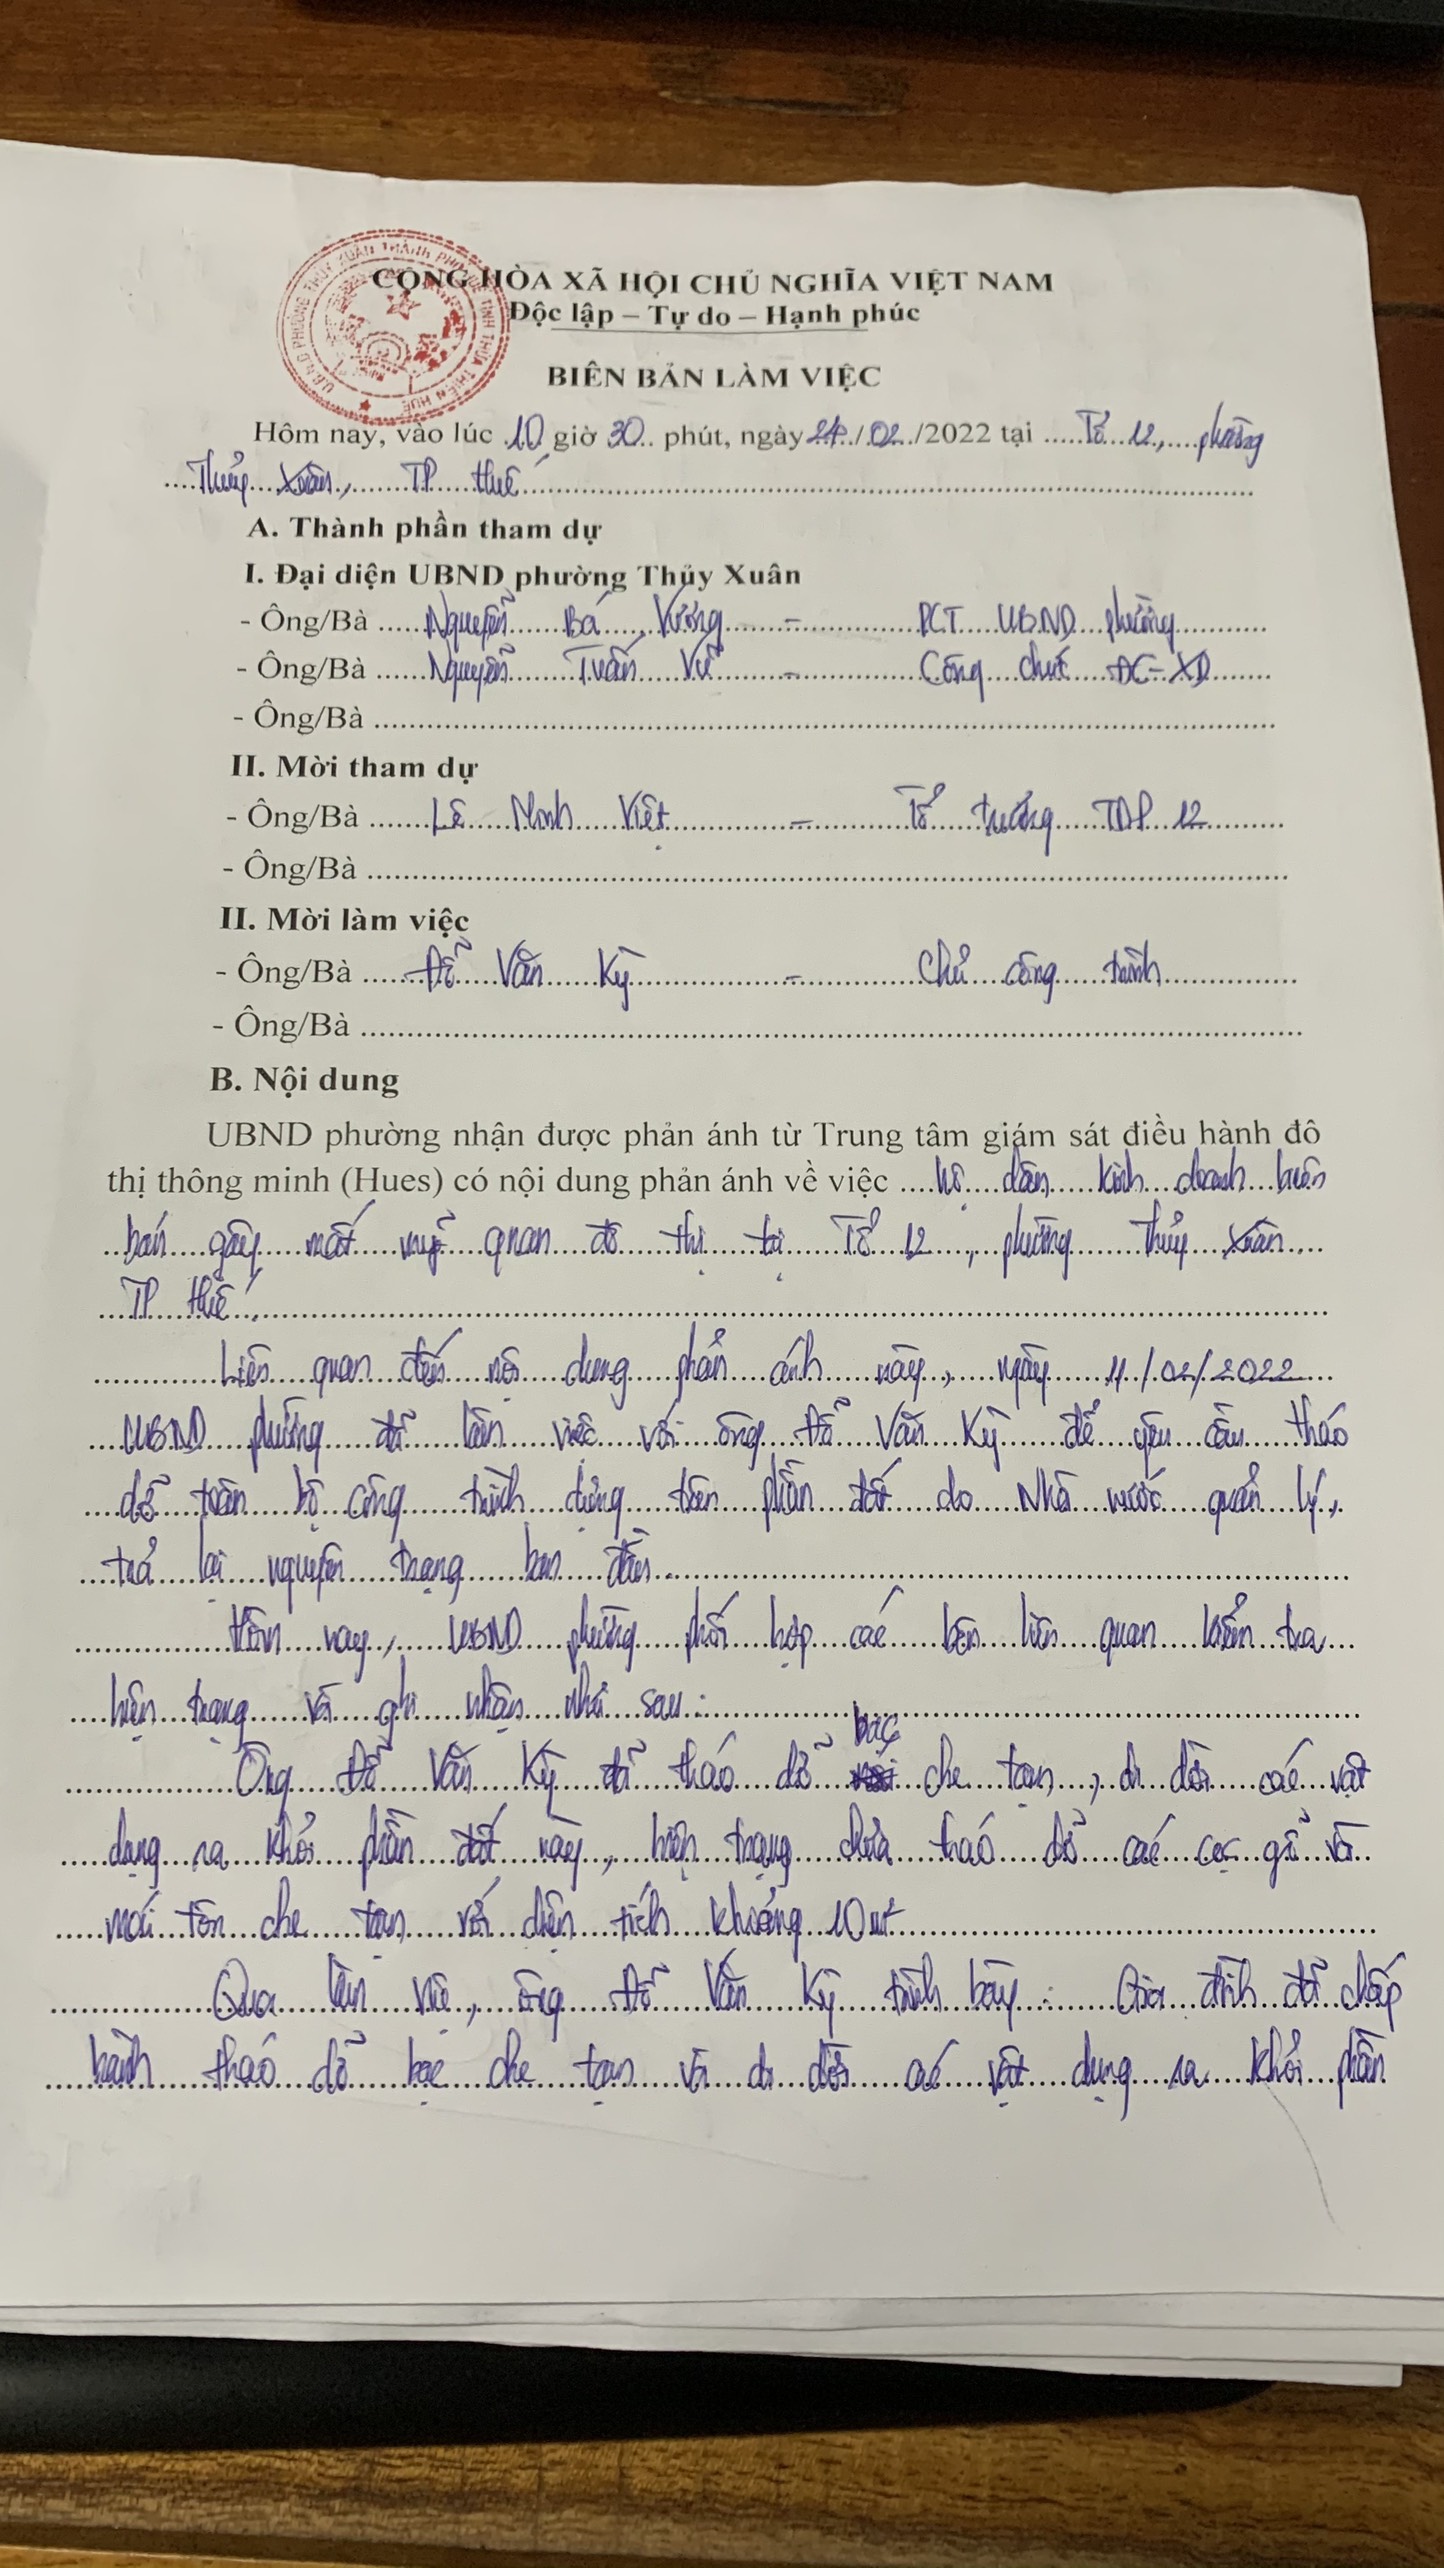 U.B.N.D PHƯỜNG THỦY XUÂN THÀNH PHỐ HUẾ TỈNH THỪA THIÊN HUẾ
CỘNG HÒA XÃ HỘI CHỦ NGHĨA VIỆT NAM
Độc lập – Tự do – Hạnh phúc
BIÊN BẢN LÀM VIỆC
Hôm nay, vào lúc 10 giờ 30 phút, ngày 24/02/2022 tại Tổ 12, phường
Thủy Xuân, TP Huế
A. Thành phần tham dự
I. Đại diện UBND phường Thủy Xuân
- Ông/Bà Nguyễn Bá Vương - PCT UBND phường
- Ông/Bà Nguyễn Tuấn Vũ - Công chức ĐC-XD
- Ông/Bà
II. Mời tham dự
- Ông/Bà Lê Minh Việt - Tổ trưởng TDP 12
- Ông/Bà
II. Mời làm việc
- Ông/Bà Đỗ Văn Kỳ - Chủ công trình
- Ông/Bà
B. Nội dung
UBND phường nhận được phản ánh từ Trung tâm giám sát điều hành đô
thị thông minh (Hues) có nội dung phản ánh về việc hộ dân kinh doanh buôn
bán gây mất mỹ quan đô thị tại Tổ 12, phường Thủy Xuân
TP Huế.
Liên quan đến nội dung phản ánh này, ngày 11/02/2022
UBND phường đã làm việc với ông Đỗ Văn Kỳ để yêu cầu tháo
dỡ toàn bộ công trình dựng trên phần đất do Nhà nước quản lý,
trả lại nguyên trạng ban đầu.
Hôm nay, UBND phường phối hợp các bên liên quan kiểm tra
hiện trạng và ghi nhận như sau:
Ông Đỗ Văn Kỳ đã tháo dỡ bạc che tạm, di dời các vật
dụng ra khỏi phần đất này, hiện trạng chưa tháo dỡ các cọc gỗ và
mái tôn che tạm với diện tích khoảng 10 m²
Qua làm việc, ông Đỗ Văn Kỳ trình bày: Gia đình đã chấp
hành tháo dỡ bạc che tạm và di dời các vật dụng ra khỏi phần